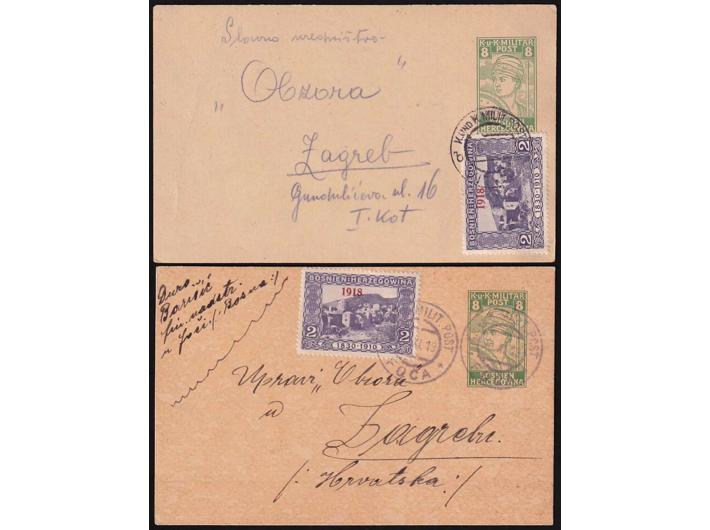 Slavno uredništvo
K.u.K. MILITÄR
POST
8 8
„Obzora"
Zagreb
HERZEGOWINA
K. UND K. MILIT. POST
Gundulićeva ul. 16
I. Kat
BOSNIEN-HERZEGOWINA
1918
2 2
1830-1910
Đuro
u Foči /: Bosna :/
BOSNIEN-HERZEGOWINA
1918
2 2
1830-1910
MILIT. POST
FOČA
K.u.K. MILITÄR
8 POST 8
BOSNIEN
HERCEGOVINA
POST
Upravi „Obzora
u
Zagrebu
/: Hrvatska :/